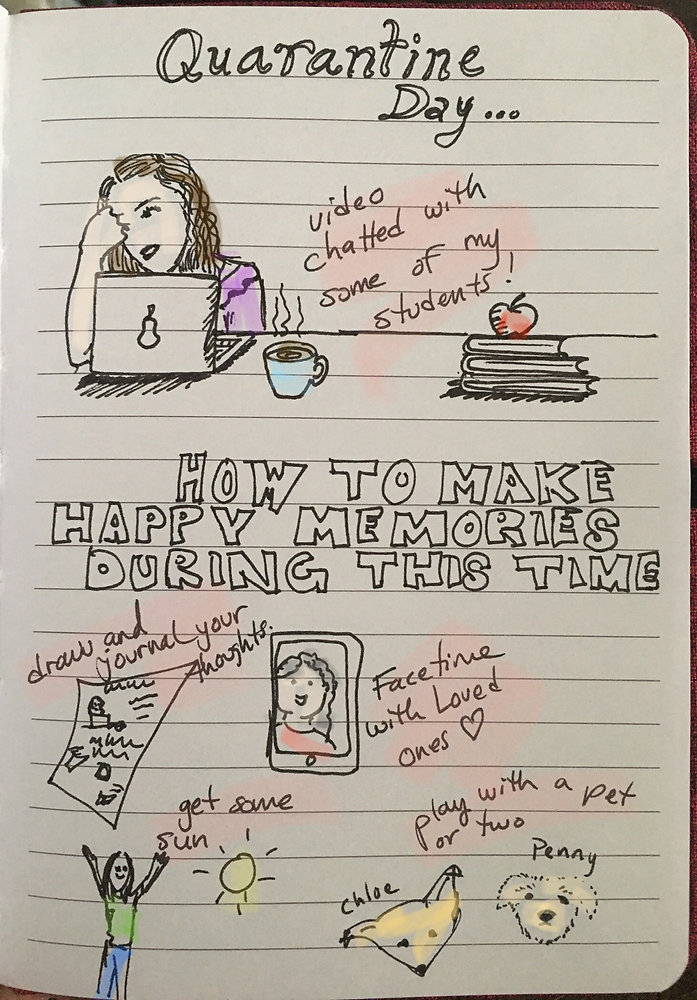 Quarantine
Day...
video
chatted with
some of my
students!
HOW TO MAKE
HAPPY MEMORIES
DURING THIS TIME
draw and
journal your
thoughts.
Facetime
with Loved
ones ♡
get some
sun
play with a pet
or two
Chloe
Penny